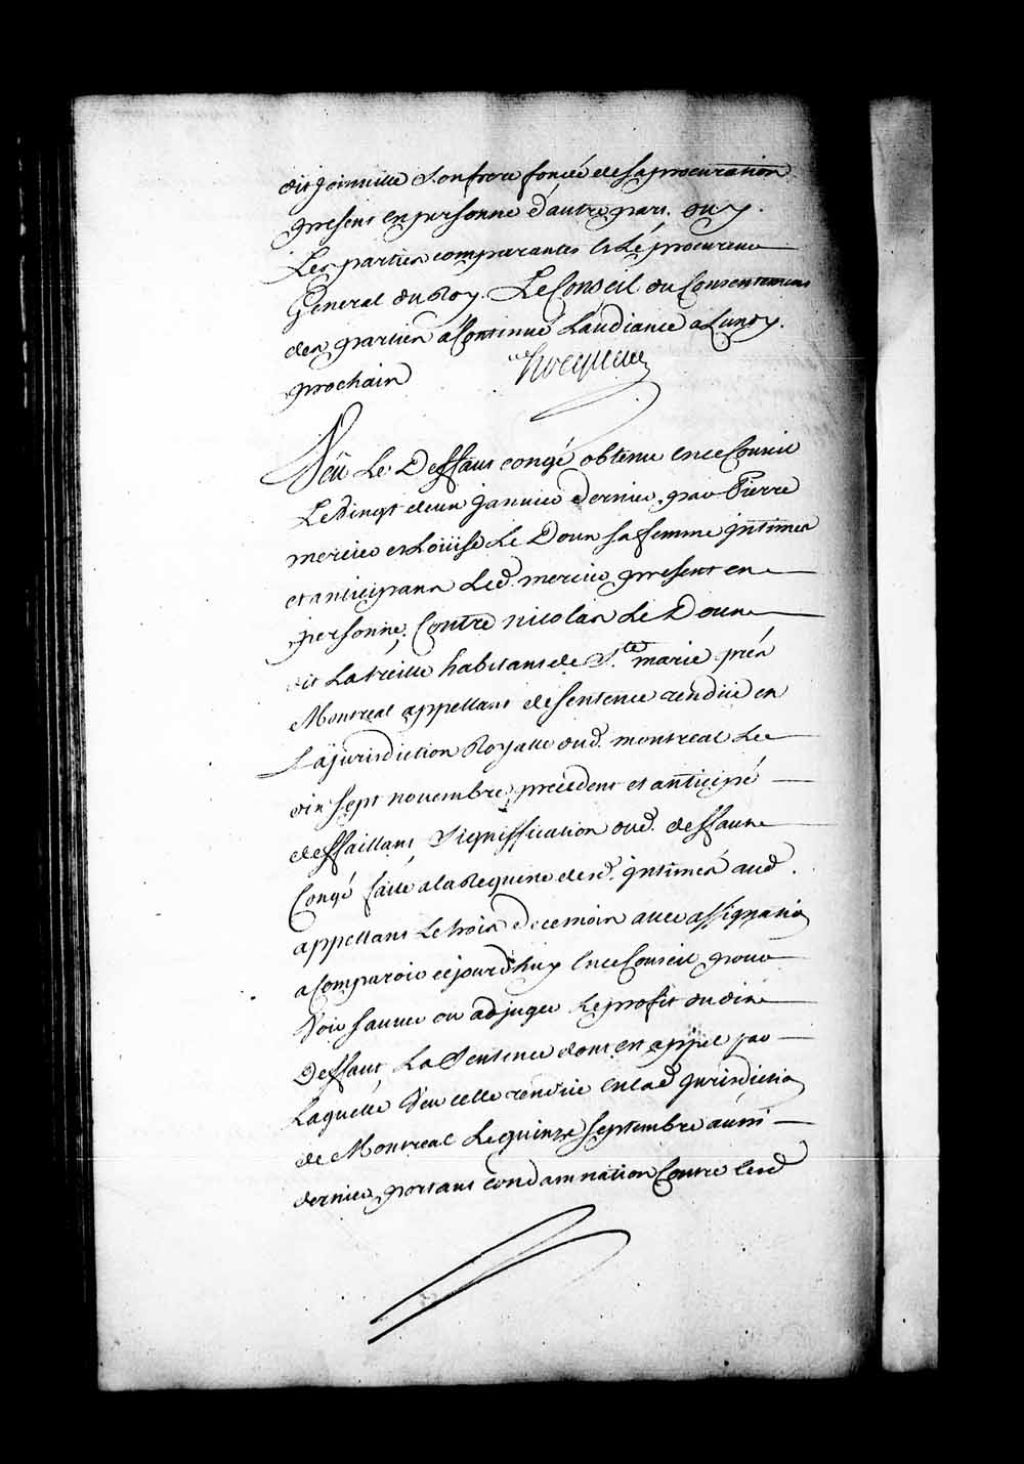 dit Joinville Son frere fondé de Sa procuration
present en personne d'autre part. ouy
Les parties comparantes et Le procureur
General du Roy. Le Conseil du Consentement
des parties a Continué L'audiance a Lundy
prochain Hocquart
Veu Le Deffaut congé obtenu en ce Conseil
Le Vingt deux Janvier dernier, par Pierre
mercier et Loüise Le Doux sa femme Intimés
et anticipans Led. mercier present en
personne. Contre nicolas Le Doux
dit Latreille habitant de Ste. marie près
Montreal appellant de sentence rendüe en
La jurisdiction Royalle dud. montreal Le
dix sept novembre, precedent et anticipé
deffaillant, Signiffication dud. deffaut
Congé faite a la Requeste desd. Intimés aud.
appellant Le trois de ce mois avec assignation
a Comparoir cejourd'huy en ce Conseil pour
Voir sauver ou adjuger Le profit dudit
Deffaut, La Sentence dont en appel par
Laquelle Veu celle rendüe en lad. Jurisdiction
de Montreal Le quinze septembre aussi
dernier, portant condamnation Contre lesd